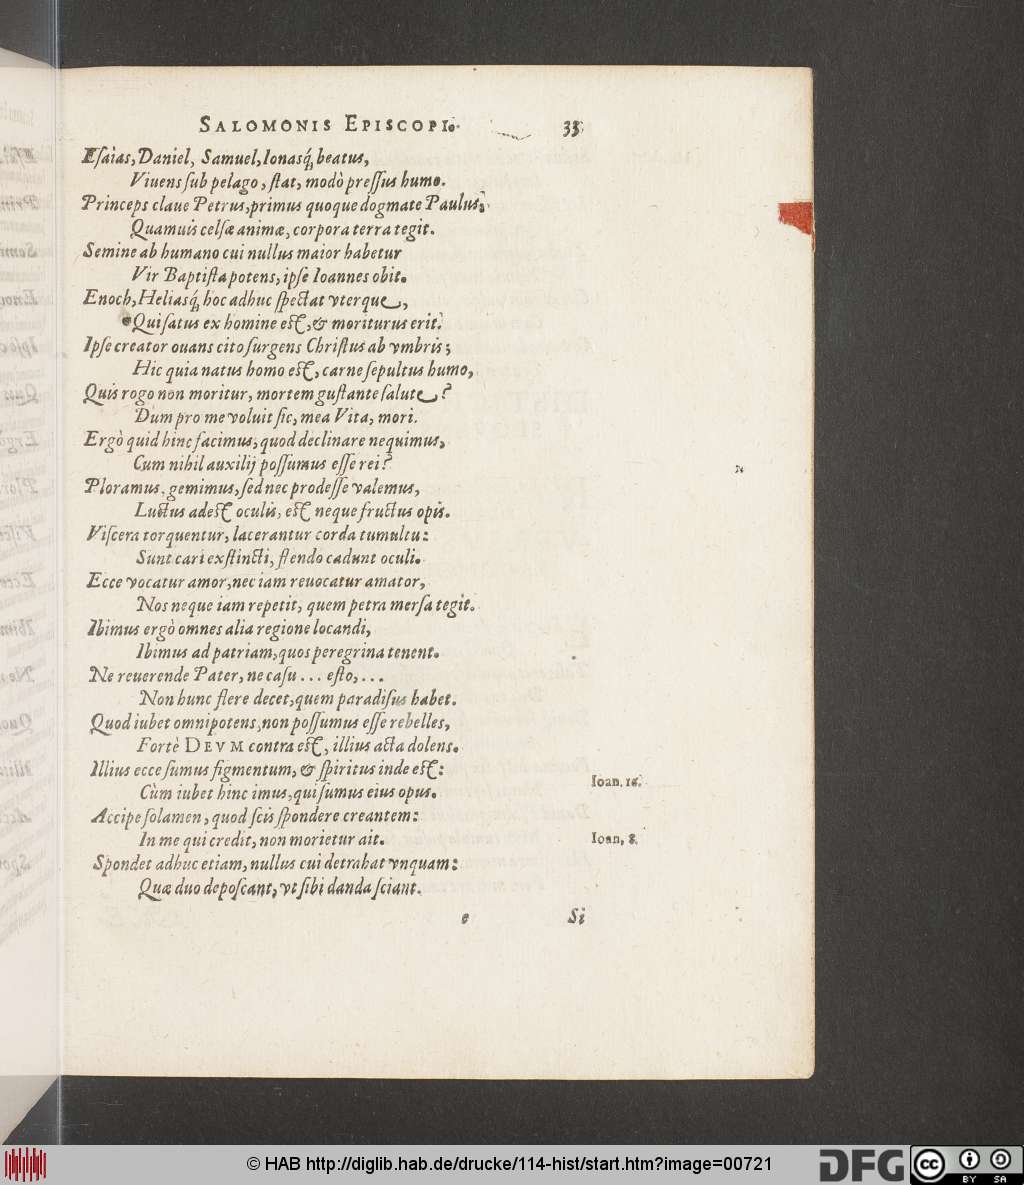 SALOMONIS EPISCOPI. 33
Esaìas, Daniel, Samuel, Ionasq́, beatus,
Viuens sub pelago, stat, modò pressus humo.
Princeps claue Petrus, primus quoque dogmate Paulus;
Quamuis celsæ animæ, corpora terra tegit.
Semine ab humano cui nullus maior habetur
Vir Baptista potens, ipse Ioannes obit.
Enoch, Heliasq́, hoc adhuc spectat vterque,
Qui satus ex homine est, & moriturus erit.
Ipse creator ouans cito surgens Christus ab vmbris;
Hic quia natus homo est, carne sepultus humo,
Quis rogo non moritur, mortem gustante salute?
Dum pro me voluit sic, mea Vita, mori.
Ergò quid hinc facimus, quod declinare nequimus,
Cum nihil auxilij possumus esse rei?
Ploramus, gemimus, sed nec prodesse valemus,
Luctus adest oculis, est neque fructus opis.
Viscera torquentur, lacerantur corda tumultu:
Sunt cari exstincti, flendo cadunt oculi.
Ecce vocatur amor, nec iam reuocatur amator,
Nos neque iam repetit, quem petra mersa tegit.
Ibimus ergò omnes alia regione locandi,
Ibimus ad patriam, quos peregrina tenent.
Ne reuerende Pater, ne casu ... esto, ...
Non hunc flere decet, quem paradisus habet.
Quod iubet omnipotens, non possumus esse rebelles,
Fortè DEVM contra est, illius acta dolens.
Illius ecce sumus figmentum, & spiritus inde est:
Cùm iubet hinc imus, qui sumus eius opus.
Ioan. 16.
Accipe solamen, quod scis spondere creantem:
In me qui credit, non morietur ait.
Ioan, 8.
Spondet adhuc etiam, nullus cui detrahat vnquam:
Quæ duo deposcant, vt sibi danda sciant.
e Si
© HAB http://diglib.hab.de/drucke/114-hist/start.htm?image=00721
DFG cc BY SA